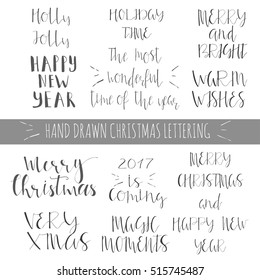 Holly
Jolly
HAPPY
NEW
YEAR
HOLIDAY
TIME
The most
wonderful
time of the year
MERRY
and
BRIGHT
WARM
WISHES
HAND DRAWN CHRISTMAS LETTERING
Merry
Christmas
VERY
XMAS
2017
is
Coming
MAGIC
MOMENTS
MERRY
CHRISTMAS
and
HAPPY NEW
YEAR
shutterstock.com · 515745487